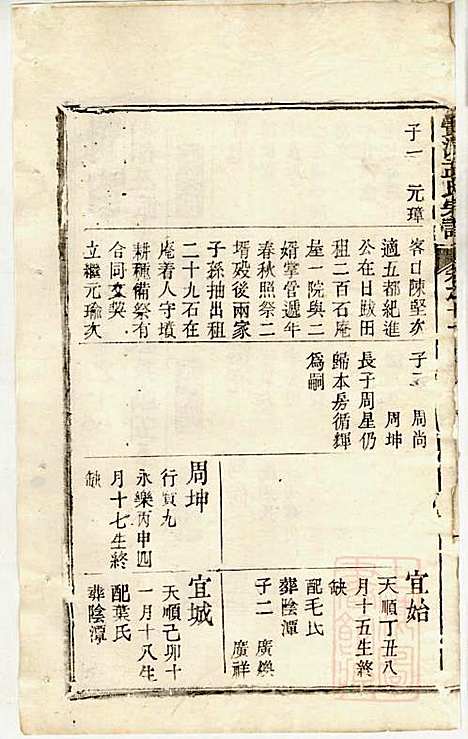 子一 元璋
客口陳堅次
適五都紀進
公在日跋田
租二百石庵
屋一院與二
婿掌管遞年
春秋照祭二
壻殁後兩家
子孫抽出租
二十九石在
庵着人守墳
耕種備祭有
合同文契
立繼元瑜次
子二 周尚
周坤
長子周星仍
歸本房循輝
爲嗣
周坤
行貳九
永樂丙申四
月十七生終
缺
宜始
天順丁丑八
月十五生終
缺
配毛氏
葬陰潭
子二 廣鑠
廣祥
宜城
天順己卯十
一月十八生
配葉氏
葬陰潭